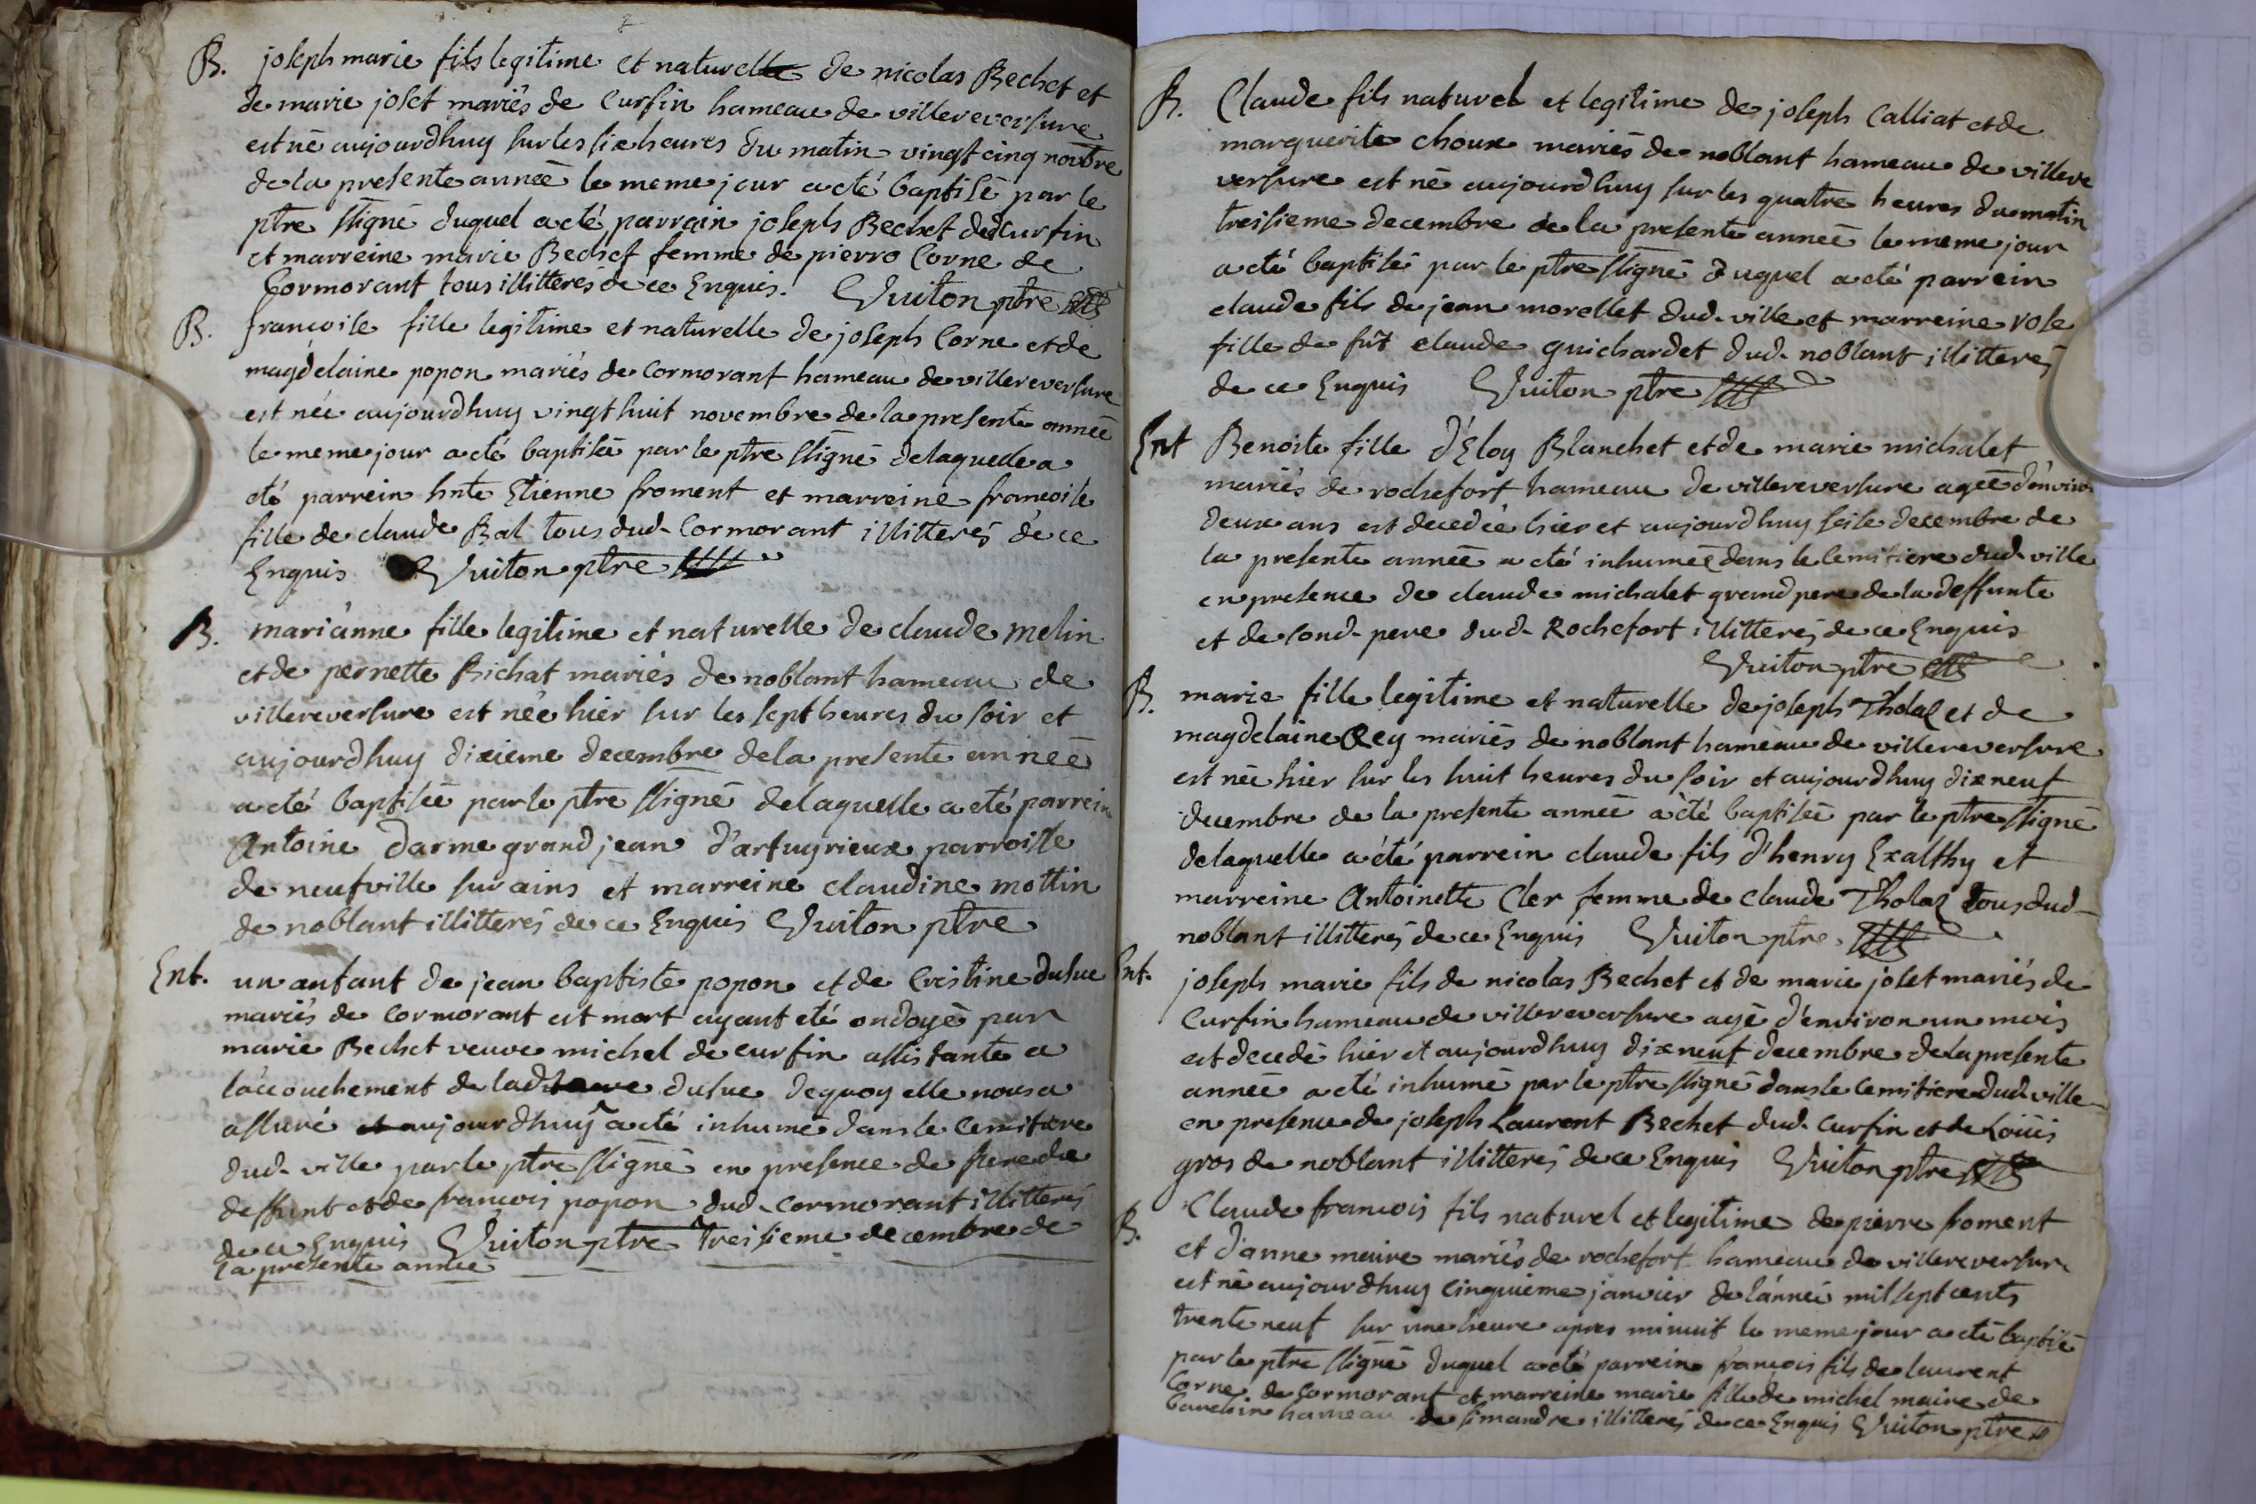 B. joseph marie fils legitime et naturelle de nicolas Bechet et
de marie joset mariés de Curfin hameau de villereversure
est né aujourdhuy sur les six heures du matin vingt cinq novbre
de la presente année le meme jour a eté baptisé par le
ptre ssigné duquel a eté parrain joseph Bechet dud Curfin
et marreine marie Bechet femme de pierre Corne de
Cormorant tous illitterés de ce Enquis. Vuiton ptre
B. francoise fille legitime et naturelle de joseph Corne et de
magdelaine popon mariés de Cormorant hameau de villereversure
est née aujourdhuy vingt huit novembre de la presente année
le meme jour a eté baptisée par le ptre ssigné de laquelle a
eté parrein hnte Etienne froment et marreine francoise
fille de claude Bal tous dud. Cormorant illitterés de ce
Enquis Vuiton ptre
B. marianne fille legitime et naturelle de claude melin
et de pernette Richat mariés de noblant hameau de
villereversure est née hier sur les sept heures du soir et
aujourdhuy dixieme decembre de la presente année
a eté baptisée par le ptre ssigné de laquelle a eté parrein
Antoine darme grand jean d'artuyrieux parroisse
de neufville sur ains et marreine claudine mottin
de noblant illitterés de ce Enquis Vuiton ptre
Ent. un anfant de jean baptiste popon et de Cristine dusue
mariés de Cormorant est mort ayant eté ondoyé par
marie Bechet veuve michel de curfin assistante a
l'accouchement de lad dusue de quoy elle nous a
assuré et aujourdhuy a eté inhumé dans le Cemitiere
dud. ville par le ptre ssigné en presence de pere du
deffunt et de francois popon dud. cormorant illitterés
de ce Enquis Vuiton ptre treisieme decembre de
la presente année
B. Claude fils naturel et legitime de joseph Calliat et de
marguerite choux mariés de noblant hameau de villere
versure est né aujourdhuy sur les quatre heures du matin
treisieme decembre de la presente année le meme jour
a eté baptisé par le ptre ssigné duquel a eté parrein
claude fils de jean morellet dud. ville et marreine rose
fille de fût claude guichardet dud. noblant illitterés
de ce Enquis Vuiton ptre
Ent Benoite fille d'Eloy Blanchet et de marie michalet
mariés de rochefort hameau de villereversure agée d'environ
deux ans est decedée hier et aujourdhuy seise decembre de
la presente année a eté inhumée dans le Cemitiere dud. ville
en presence de claude michalet grand pere de la deffunte
et de sond. pere dud. Rochefort illitterés de ce Enquis
Vuiton ptre
B. marie fille legitime et naturelle de joseph Tholaz et de
magdelaine Rey mariés de noblant hameau de villereversure
est née hier sur les huit heures du soir et aujourdhuy dixneuf
decembre de la presente année a eté baptisée par le ptre ssigné
de laquelle a eté parrein claude fils d'henry Exalthy et
marreine Antoinette Cler femme de Claude Tholaz tous dud.
noblant illitterés de ce Enquis Vuiton ptre
Ent. joseph marie fils de nicolas Bechet et de marie joset mariés de
Curfin hameau de villereversure agé d'environ un mois
est decedé hier et aujourdhuy dixneuf decembre de la presente
année a eté inhumé par le ptre ssigné dans le Cemitiere dud. ville
en presence de joseph Laurent Bechet dud. Curfin et de Loüis
gros de noblant illitterés de ce Enquis Vuiton ptre
B. Claude francois fils naturel et legitime de pierre froment
et d'anne maire mariés de rochefort hameau de villereversure
est né aujourdhuy Cinquieme janvier de l'année mil sept cents
trente neuf sur une heure apres minuit le meme jour a eté baptisé
par le ptre ssigné duquel a eté parrein francois fils de laurent
Corne de Cormorant et marreine marie fille de michel maire de
hameau de simandre illitterés de ce Enquis Vuiton ptre